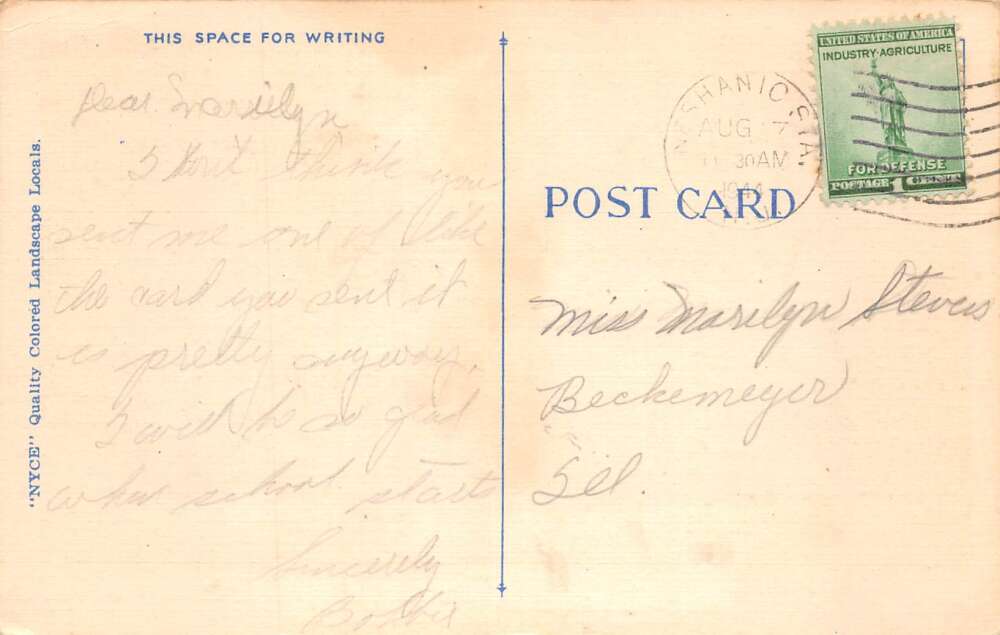 THIS SPACE FOR WRITING
Dear Marilyn
I don't think you
sent me one of like
the card you sent it
is pretty anyway.
I will be so glad
when school starts
Sincerely
Bobbie
"NYCE" Quality Colored Landscape Locals.
AUG 7
11 30AM
1944
UNITED STATES OF AMERICA
INDUSTRY·AGRICULTURE
FOR DEFENSE
POSTAGE 1 CENT
POST CARD
Miss Marilyn Stevens
Beckemeyer
Ill.